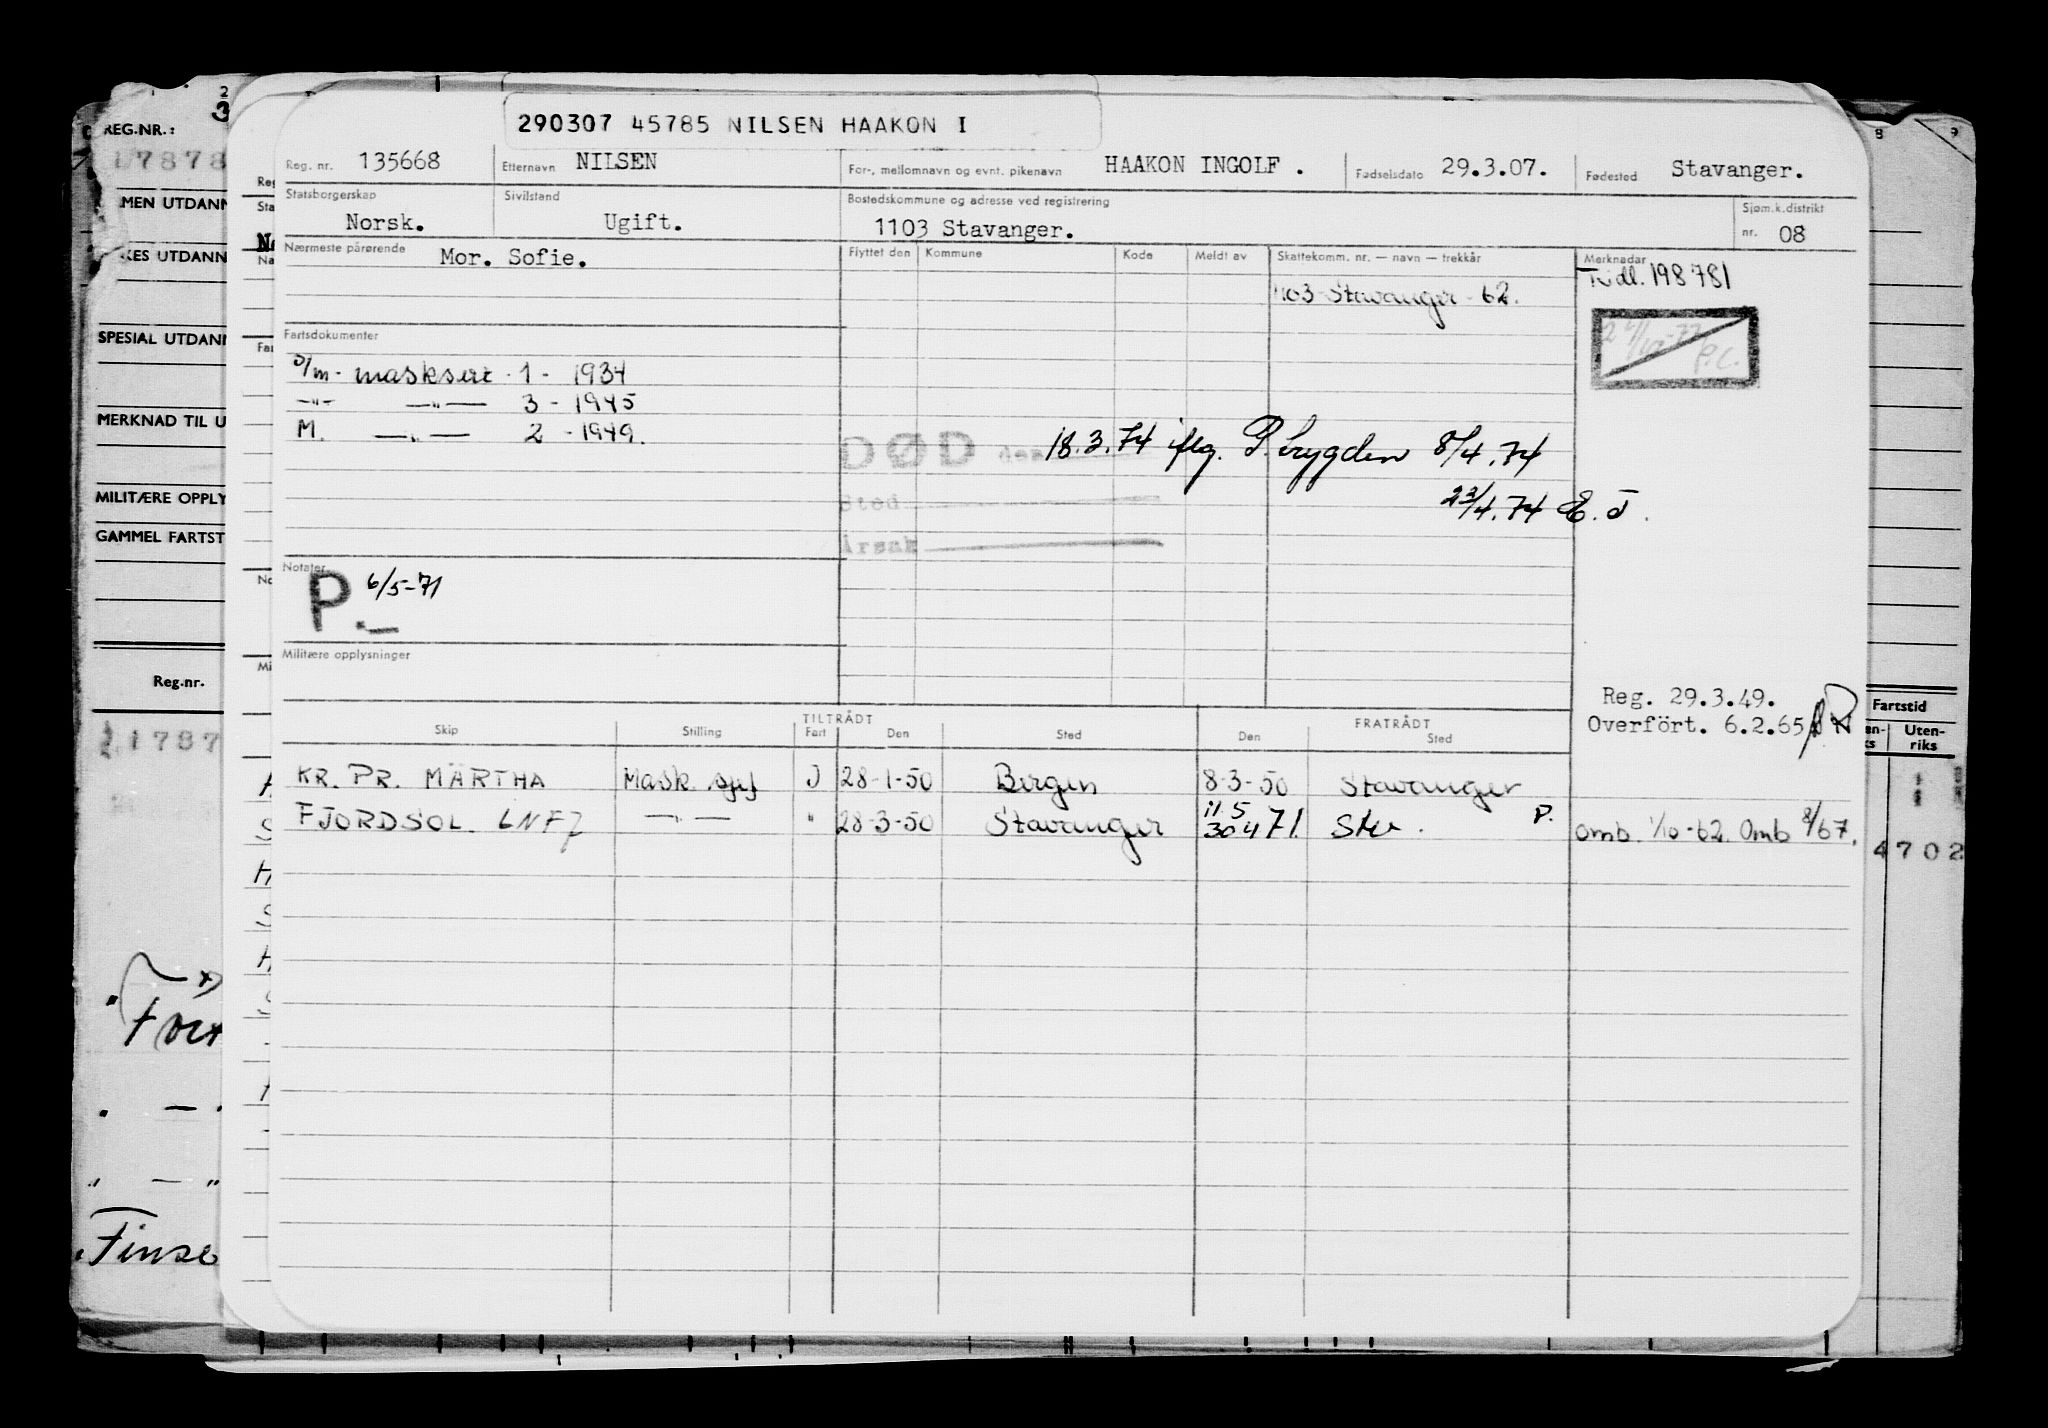 290307 45785 NILSEN HAAKON I
Reg. nr. 135668 Etternavn NILSEN For-, mellomnavn og evnt. pikenavn HAAKON INGOLF . Fødselsdato 29.3.07. Fødested Stavanger.
Statsborgerskap Sivilstand Bostedskommune og adresse ved registrering Sjøm.k.distrikt
Norsk. Ugift. 1103 Stavanger. nr. 08
Nærmeste pårørende Mor. Sofie. Flyttet den Kommune Kode Meldt av Skattekomm. nr. — navn — trekkår Merknader
Tidl. 198781
1103 Stavanger - 62.
Fartsdokumenter
D/m - masksert - 1 - 1934
—„— —„— 3 - 1945
M. —„— 2 - 1949.
DØD den 18.3.74 iflg. P. trygden 8/4.74
Sted 23/4.74 E. J.
Årsak
Notater
P. 6/5-71
Militære opplysninger
Reg. 29.3.49.
Overfört. 6.2.65
TILTRÅDT FRATRÅDT
Skip Stilling Fart Den Sted Den Sted
KR. PR. MÄRTHA Mask sjef J 28-1-50 Bergen 8-3-50 Stavanger
11.5
FJORDSOL. LNFJ —„— " 28-3-50 Stavanger 30 4 71 Stv. P. omb. 1/10-62. Omb 8/67.
REG.NR.:
17878
MEN UTDANN
KES UTDANN
SPESIAL UTDANN
MERKNAD TIL U
MILITÆRE OPPLY
GAMMEL FARTST
Reg.nr.
1787
Finse
Fartstid
Uten-
riks
4702